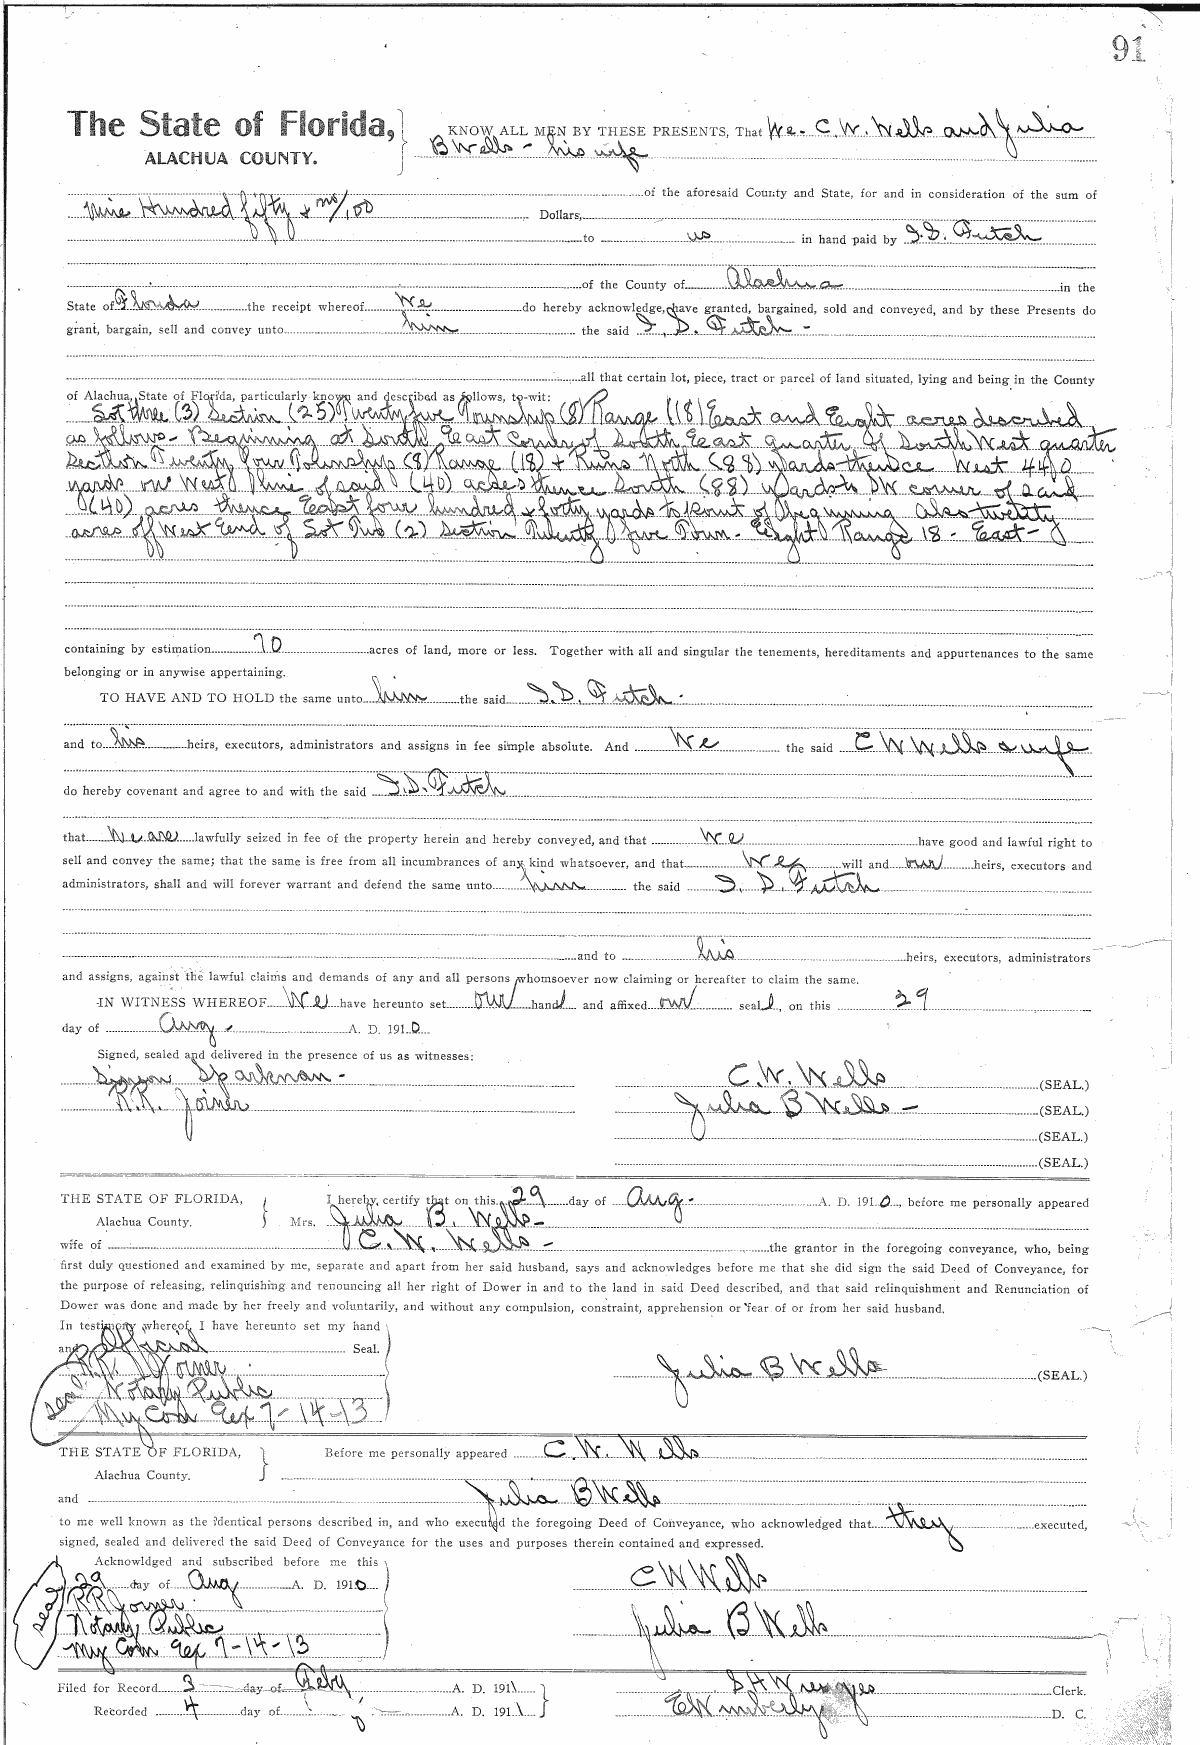 91
The State of Florida,
ALACHUA COUNTY.
KNOW ALL MEN BY THESE PRESENTS, That We - C. W. Wells and Julia
B Wells - his wife
of the aforesaid County and State, for and in consideration of the sum of
Nine Hundred fifty & no/100 Dollars,
to us in hand paid by I. S. Futch
of the County of Alachua in the
State of Florida the receipt whereof We do hereby acknowledge, have granted, bargained, sold and conveyed, and by these Presents do
grant, bargain, sell and convey unto him the said I. S. Futch -
all that certain lot, piece, tract or parcel of land situated, lying and being in the County
of Alachua, State of Florida, particularly known and described as follows, to-wit:
Lot three (3) Section (25) Twenty five Township (8) Range (18) East and Eight acres described
as follows - Beginning at South East Corner of South East quarter of South West quarter
Section Twenty four Township (8) Range (18) & Runs North (88) yards thence West 440
yards on West line of said (40) acres thence South (88) yards to SW corner of said
(40) acres thence East four hundred & forty yards to point of Beginning Also twenty
acres off West End of Lot Two (2) Section Twenty five Town - Eight Range 18 - East -
containing by estimation 70 acres of land, more or less. Together with all and singular the tenements, hereditaments and appurtenances to the same
belonging or in anywise appertaining.
TO HAVE AND TO HOLD the same unto him the said I. S. Futch -
and to his heirs, executors, administrators and assigns in fee simple absolute. And We the said C W Wells & wife
do hereby covenant and agree to and with the said I. S. Futch
that We are lawfully seized in fee of the property herein and hereby conveyed, and that We have good and lawful right to
sell and convey the same; that the same is free from all incumbrances of any kind whatsoever, and that We will and our heirs, executors and
administrators, shall and will forever warrant and defend the same unto him the said I. S. Futch
and to his heirs, executors, administrators
and assigns, against the lawful claims and demands of any and all persons whomsoever now claiming or hereafter to claim the same.
IN WITNESS WHEREOF We have hereunto set our hand and affixed our seal, on this 29
day of Aug. A. D. 1910
Signed, sealed and delivered in the presence of us as witnesses:
Simson Sparkman - C. W. Wells (SEAL.)
R. R. Joiner Julia B Wells - (SEAL.)
(SEAL.)
(SEAL.)
THE STATE OF FLORIDA, I hereby certify that on this 29 day of Aug. A. D. 1910, before me personally appeared
Alachua County. Mrs. Julia B. Wells -
wife of C. W. Wells - the grantor in the foregoing conveyance, who, being
first duly questioned and examined by me, separate and apart from her said husband, says and acknowledges before me that she did sign the said Deed of Conveyance, for
the purpose of releasing, relinquishing and renouncing all her right of Dower in and to the land in said Deed described, and that said relinquishment and Renunciation of
Dower was done and made by her freely and voluntarily, and without any compulsion, constraint, apprehension or fear of or from her said husband.
In testimony whereof, I have hereunto set my hand
and Official Seal.
R. R. Joiner Julia B Wells (SEAL)
seal Notary Public
My Com Exp 7-14-13
THE STATE OF FLORIDA, Before me personally appeared C. W. Wells
Alachua County.
and Julia B Wells
to me well known as the identical persons described in, and who executed the foregoing Deed of Conveyance, who acknowledged that they executed,
signed, sealed and delivered the said Deed of Conveyance for the uses and purposes therein contained and expressed.
Acknowldged and subscribed before me this
29 day of Aug A. D. 1910 C W Wells
seal R R Joiner
Notary Public Julia B Wells
My Com Exp 7-14-13
Filed for Record 3 day of Feby A. D. 1911 S H Wienges Clerk.
Recorded 4 day of A. D. 1911 E Wimberly D. C.